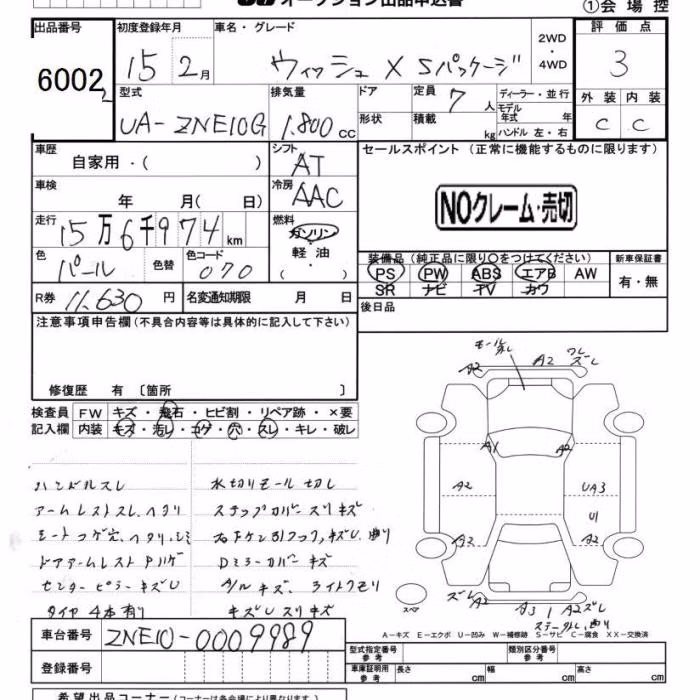 オークション出品申込書 ①会場控
出品番号 初度登録年月 車名・グレード 評価点
6002 15 2月 ウィッシュ X Sパッケージ 2WD・4WD 3
型式 排気量 ドア 定員 7人 ディーラー・並行 外装 内装
UA-ZNE10G 1.800cc 形状 積載 kg モデル年式 年 ハンドル 左・右 C C
車歴 自家用・( ) シフト AT セールスポイント (正常に機能するものに限ります)
車検 年 月( 日) 冷房 AAC
NOクレーム・売切
走行 15万6千974km 燃料 ガソリン・軽油・( )
色 パール 色替 色コード 070
装備品 (純正品に限り〇をつけてください) 新車保証書
PS PW ABS エアB AW 有・無
SR ナビ TV カワ
R券 11,630円 名変通知期限 月 日 後日品
注意事項申告欄(不具合内容等は具体的に記入して下さい)
修復歴 有 [箇所 ]
検査員 FW キズ・飛石・ヒビ割・リペア跡・×要
記入欄 内装 キズ・汚レ・コゲ・穴・スレ・キレ・破レ
ハンドルスレ 水切りモール切レ
アームレストスレ、ヘタリ ステップカバースリキズ
シートコゲ穴、ヘタリ、シミ
ドアアームレスト Dミラーカバーキズ
センターピラーキズU A/Wキズ、ライトクモリ
タイヤ4本有り キズUスリキズ
モール
A2 A2 ワレ ズレ
A1 A2
A2 UA3
U1
A2 A2
ズレ A2 A3 A2 ズレ
スペア
A-キズ E-エクボ U-凹み W-補修跡 S-サビ C-腐食 XX-交換済
車台番号 ZNE10-0009989
型式指定番号 参考 類別区分番号 参考
登録番号 車庫証明用 参考 長さ cm 幅 cm 高さ cm
希望出品コーナー(コーナーは各会場により異なります)